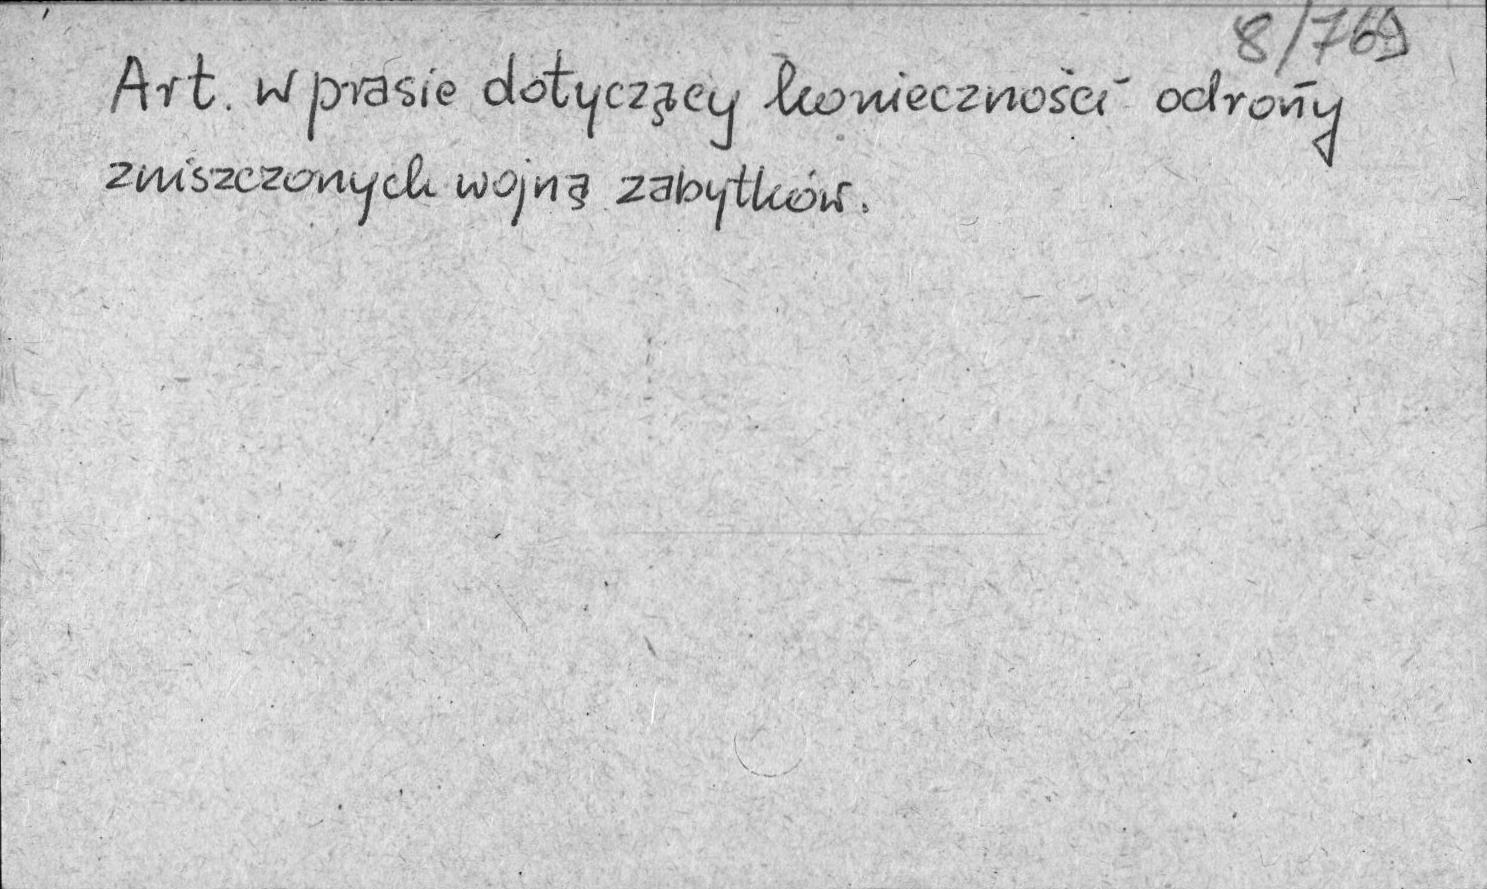 8/769
Art. w prasie dotyczący konieczności odrony
zniszczonych wojną zabytków.